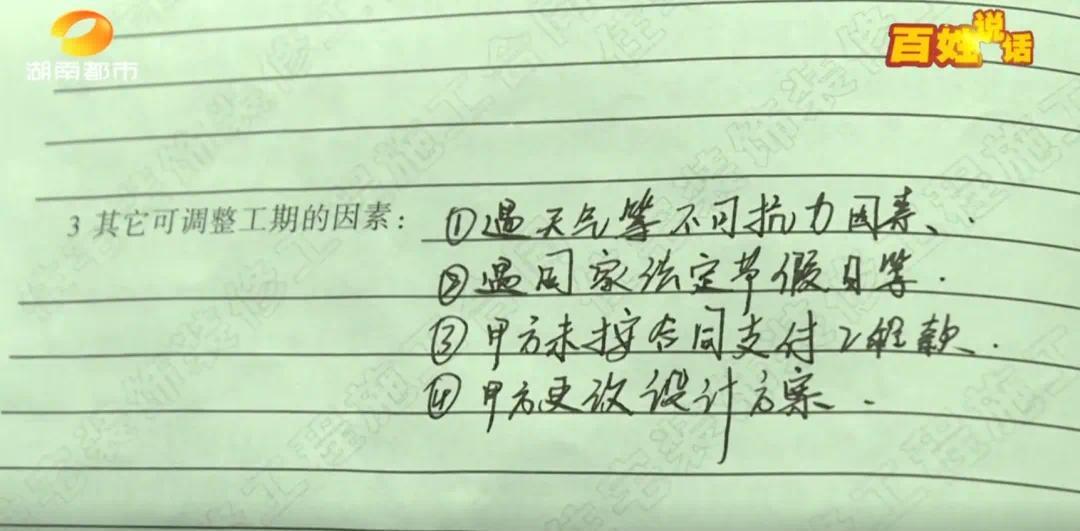 湖南都市
百姓说话
3 其它可调整工期的因素：①遇天气等不可抗力因素、.
②遇国家法定节假日等.
③甲方未按合同支付工程款.
④甲方更改设计方案.